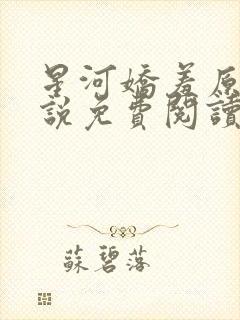 星河嬌羞原
說免費閱讀
蘇碧落